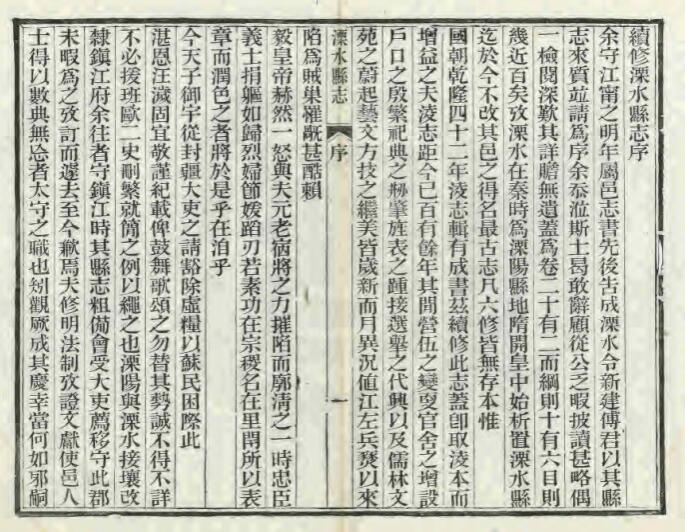 續修溧水縣志序
余守江甯之明年屬邑志書先後告成溧水令新建傅君以其縣
志來質竝請爲序余忝涖斯土曷敢辭顧從公之暇披讀甚略偶
一檢閱深歎其詳贍無遺蓋爲卷二十有二而綱則十有六目則
幾近百矣攷溧水在秦時爲溧陽縣地隋開皇中始析置溧水縣
迄於今不改其邑之得名最古志凡六修皆無存本惟
國朝乾隆四十二年淩志輯有成書茲續修此志蓋卽取淩本而
增益之夫淩志距今已百有餘年其閒營伍之變叓官舍之增設
戶口之殷繁祀典之秘肇旌表之踵接選舉之代興以及儒林文
苑之蔚起藝文方技之繼美皆歲新而月異況値江左兵燹以來
溧水縣志
序
一
陷爲賊巢罹戮甚酷賴
毅皇帝赫然一怒與夫元老宿將之力摧陷而廓淸之一時忠臣
義士捐軀如歸烈婦節媛蹈刃若素功在宗稷名在里閈所以表
章而潤色之者將於是乎在洎乎
今天子御宇從封疆大吏之請豁除虛糧以蘇民困際此
湛恩汪濊固宜敬謹紀載俾鼓舞歌頌之勿替其勢誠不得不詳
不必援班歐二史刪繁就簡之例以繩之也溧陽與溧水接壤改
隸鎭江府余往者守鎭江時其縣志粗備會受大吏薦移守此郡
未暇爲之攷訂而遽去至今歉焉夫修明法制攷證文獻使邑人
士得以數典無忘者太守之職也矧觀厥成其慶幸當何如邪嗣